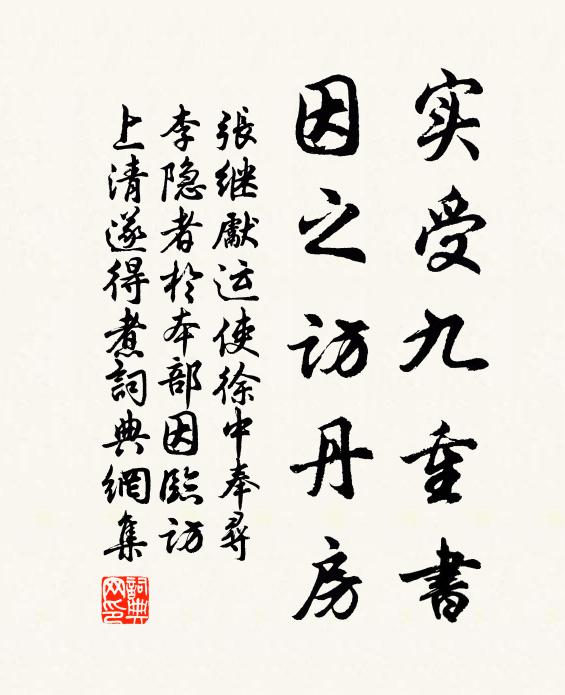 实受九重書
因之访丹房
張继獻运使徐中奉尋
李隐者於本部因臨访
上清遂得煮詞典網集
詞典网印